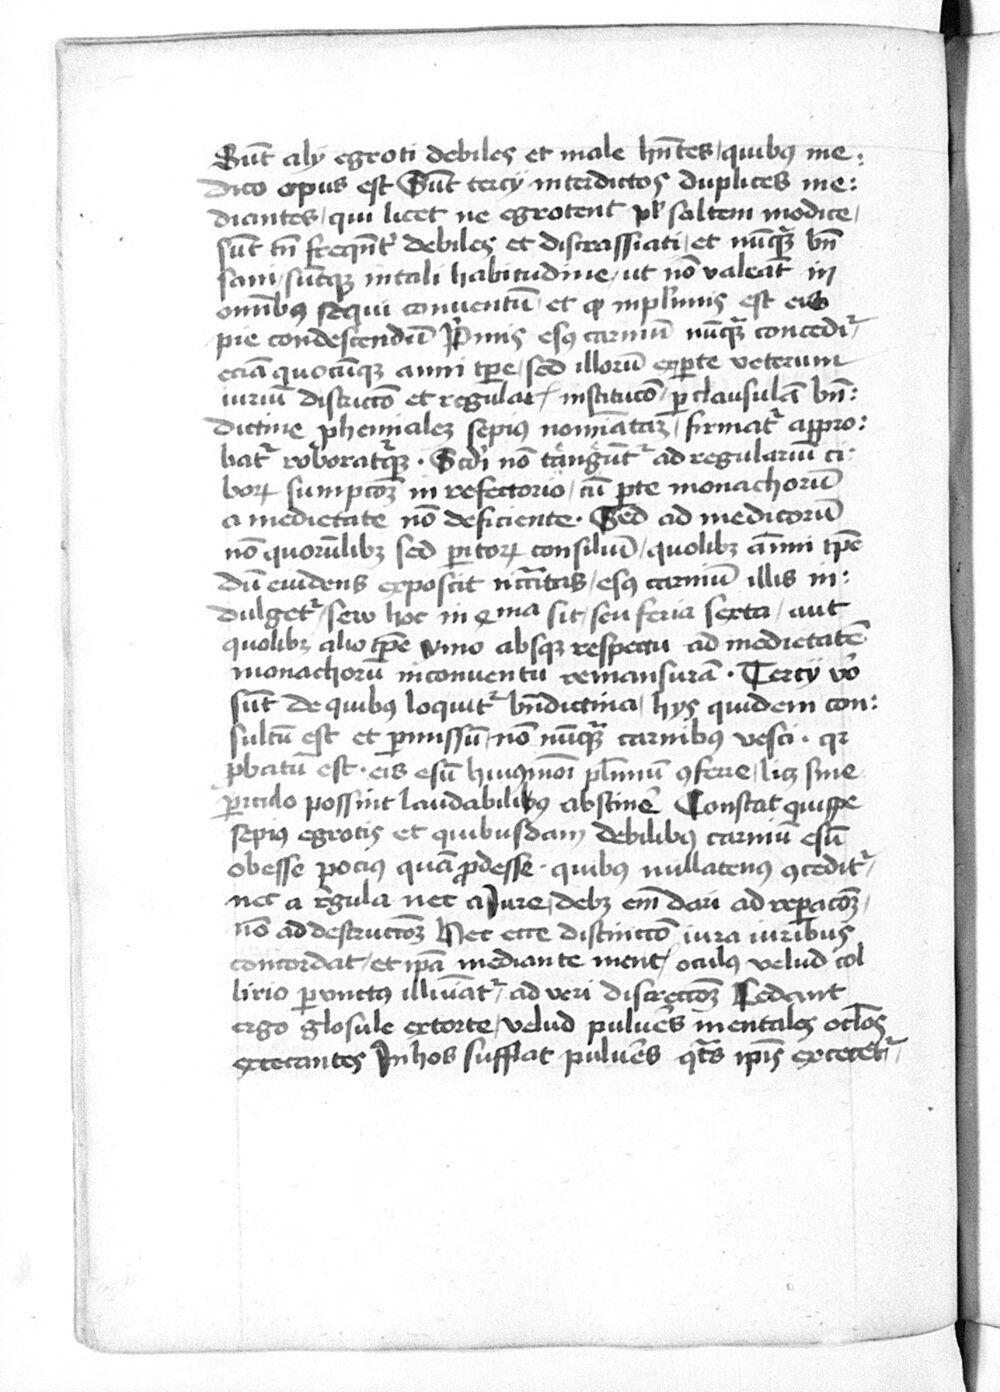 Sūt alij egroti debiles et male hn̄tes / quibus me:
dico opus est Sūt tercij interdictos duplices me:
diantes / qui licet ne egrotent vl̓ saltem modice /
sūt tn̄ freqn̄t̓ debiles et discrassiati / et nūq̄ꝫ bn̄
sani / sūtqꝫ in tali habitudine / ut nō valeāt in
omībus sequi conventū / et est eis
pie condescendēdū P̓mis esus carniū nūq̄ꝫ concedit̓
eciā quocūqꝫ anni tp̄e / sed illorū exp̄te veterum
iuriū distīccō et regulaꝝ institucō / ꝑ clausulā bn̄:
dictine phemialeꝫ sepius nominātaꝫ / firmat̓ appro:
bat̓ roborat̓qꝫ . Scd̓i nō tāgūt̓ ad regulariū ci:
boꝝ sumpcōꝫ in refectorio / cū ꝑte monachorū
a medietate nō deficiente . Sed ad medicorū
nō quorūlibꝫ sed ꝑitoꝝ consiliū / quolibꝫ anni tp̄e
dū evidens exposcit nc̄c̄itas / esus carniū illis in:
dulget̓ / sew hoc in qͬma sit / seu feria sexta / aut
quolibꝫ alio tp̄e ymo absqꝫ respectu ad medietatē
monachorū in conventu remansurā . Tercij vo̓
sūt de quibus loquit̓ bn̄dictina / hys quidem con:
sultū est et ꝑmissū / nō nūq̄ꝫ carnibus vesci . qr
ꝓbatū est . eis esū hmōi pl̓imū ꝯferre / licꝫ sine
ꝑiculo possint laudabilibus abstine̓ Constat quippe
sepius egrotis et quibusdam debilibus carniū esū
obesse pocius quā ꝓdesse . quibus nullatenus ꝯcedit̓
nec a regula nec a Jure / debꝫ em̄ dari ad reꝑacōꝫ /
nō ad destructōꝫ Hec ecce distinctō iura iuribus
concordat / et ip̄a mediante ment̓ oculus velud col
lirio ꝑunctus illumīat̓ / ad veri discrecōꝫ Cedant
ergo glosule extorte / velud pulve̓s mentales oclōs
excecantes In hos sufflat pulve̓s ip̄is excecet̓